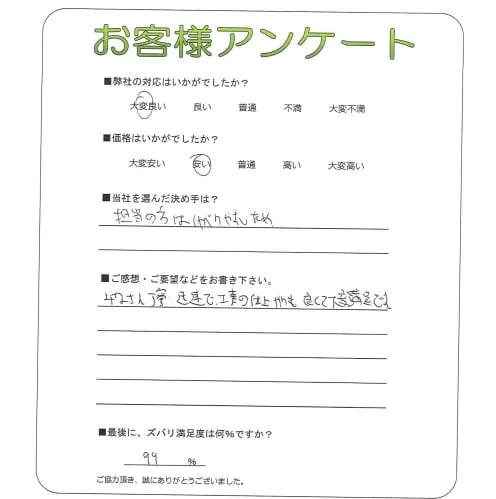 お客様アンケート
■弊社の対応はいかがでしたか？
大変良い 良い 普通 不満 大変不満
■価格はいかがでしたか？
大変安い 安い 普通 高い 大変高い
■当社を選んだ決め手は？
担当の方は やすいため
■ご感想・ご要望などをお書き下さい。
丁寧 迅速で、工事の仕上がりも良くて大変満足です。
■最後に、ズバリ満足度は何%ですか？
99 %
ご協力頂き、誠にありがとうございました。